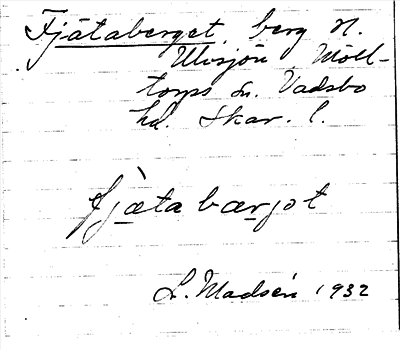 Fjätaberget, berg N.
Ulvsjön, Möll-
torps sn. Vadsbo
hd. Skar. l.
fjæta bærjot
L. Madsén 1932